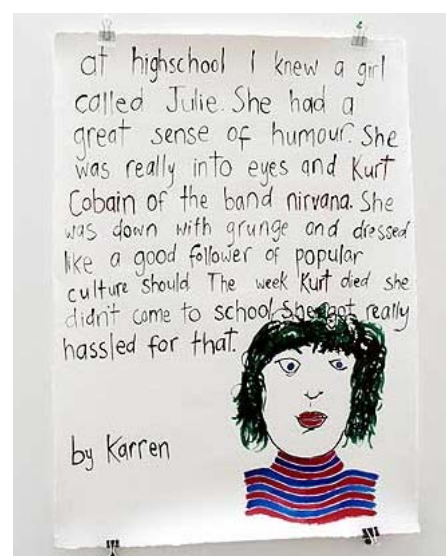 at highschool I knew a girl
called Julie. She had a
great sense of humour. She
was really into eyes and Kurt
Cobain of the band nirvana. She
was down with grunge and dressed
like a good follower of popular
culture should. The week Kurt died she
didn't come to school. She got really
hassled for that.
by Karren